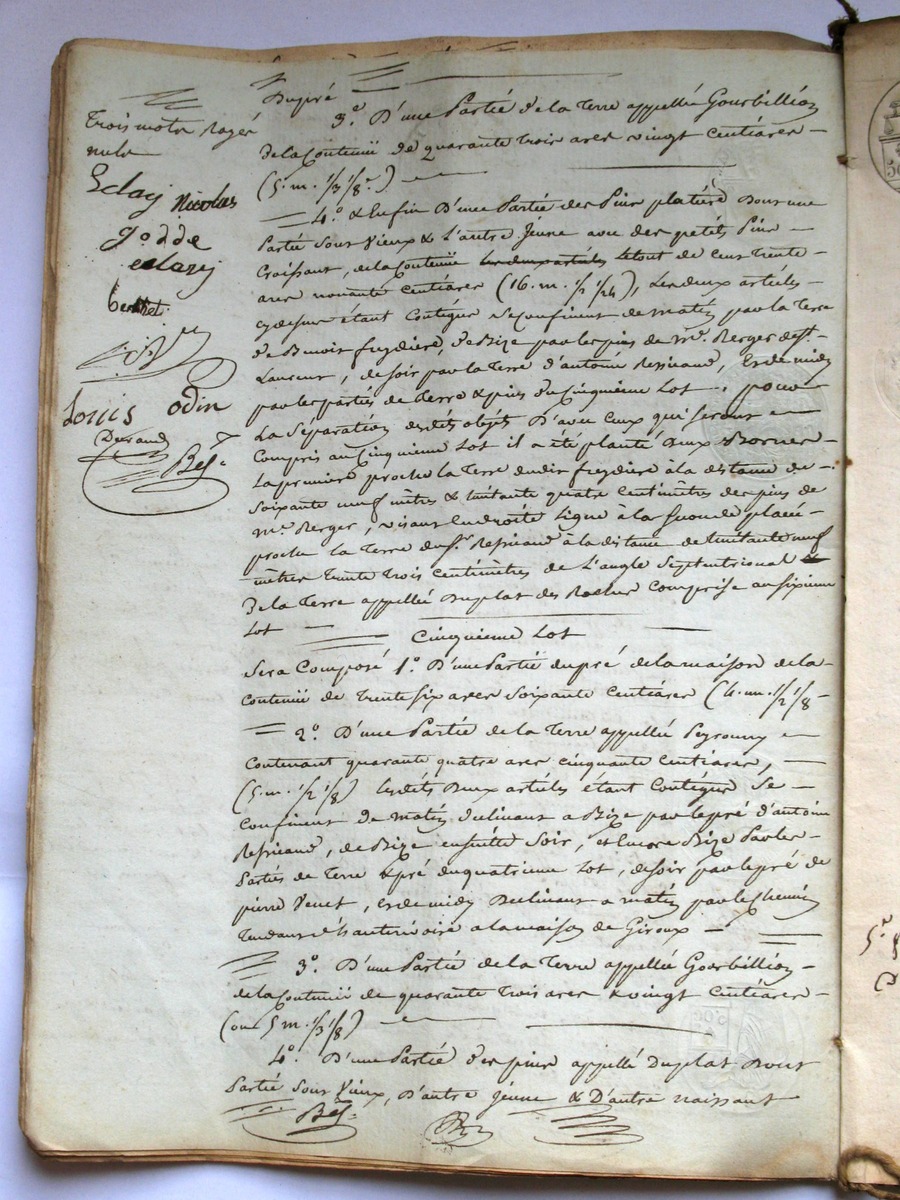 trois mots rayés
nuls
E clay Nicolas
godde
eclarij
berthet
Louis odin
Durand
Bes.
Dupré
3.º D'une Partie de la Terre appellée Gourbillion
de la Contenüe de quarante trois ares vingt Centiares
(5. m. 1/3 1/8.e)
4.º & Enfin D'une Partie des Pins platière Dont une
Partie Sont Vieux & L'autre Jeune avec des petits Pins
Craissant, de la Contenüe les deux articles le tout de Cent trente
ares nonante Centiares (16. m. 1/2 1/24), Les deux articles
cydessus étant Contigus Se Confinent de matin par la Terre
de Benoit freydière, de Bize par les pins de Mr. Berger de St.
Laurent, de soir par la Terre d'antoine Refricand, Et de midy
par les parties de terre & pins du Cinquième Lot. pour
La Séparation desdits objets D'avec Ceux qui seront
Compris au Cinquième Lot il a été planté Deux Bornes
La première proche la Terre dudit freydière à la distance de
Soixante neuf mètres & huitante quatre Centimètres des pins de
Mr. Berger, visant en droite Ligne à la seconde placée
proche la Terre du Sr. Refricand à la distance de huitante neuf
mètres trente trois Centimètres de L'angle Septentrional &
De la Terre appellée Duplat des Roches Comprise au Sixième
Lot
Cinquième Lot
Sera Composé 1.º D'une Partie du pré de la maison de la
Contenüe de trente six ares Soixante Centiares (4. m. 1/2 1/8
2.º D'une Partie de la Terre appellée Peyroury
Contenant quarante quatre ares cinquante Centiares,
(5. m. 1/2 1/8) lesdits Deux articles étant Contigus Se
Confinent de matin declinant a Bize par le pré d'antoine
Refricand, de Bize ensuite Soir, et Encore Bize Par les
Parties de Terre & pré du quatrième Lot, de soir par le pré de
pierre Venet, et de midy Declinant a matin par le Chemin
Tendant d'hauterivoire a la maison de Giroux
3.º D'une Partie de la Terre appellée Gourbillion
de la Contenüe de quarante Trois ares & vingt Centiares
(ou 5 m. 1/3 1/8)
4.º D'une Partie des pins appellé Duplat Dont
Partie Sont Vieux, D'autre Jeune & D'autre naissant
Bes.